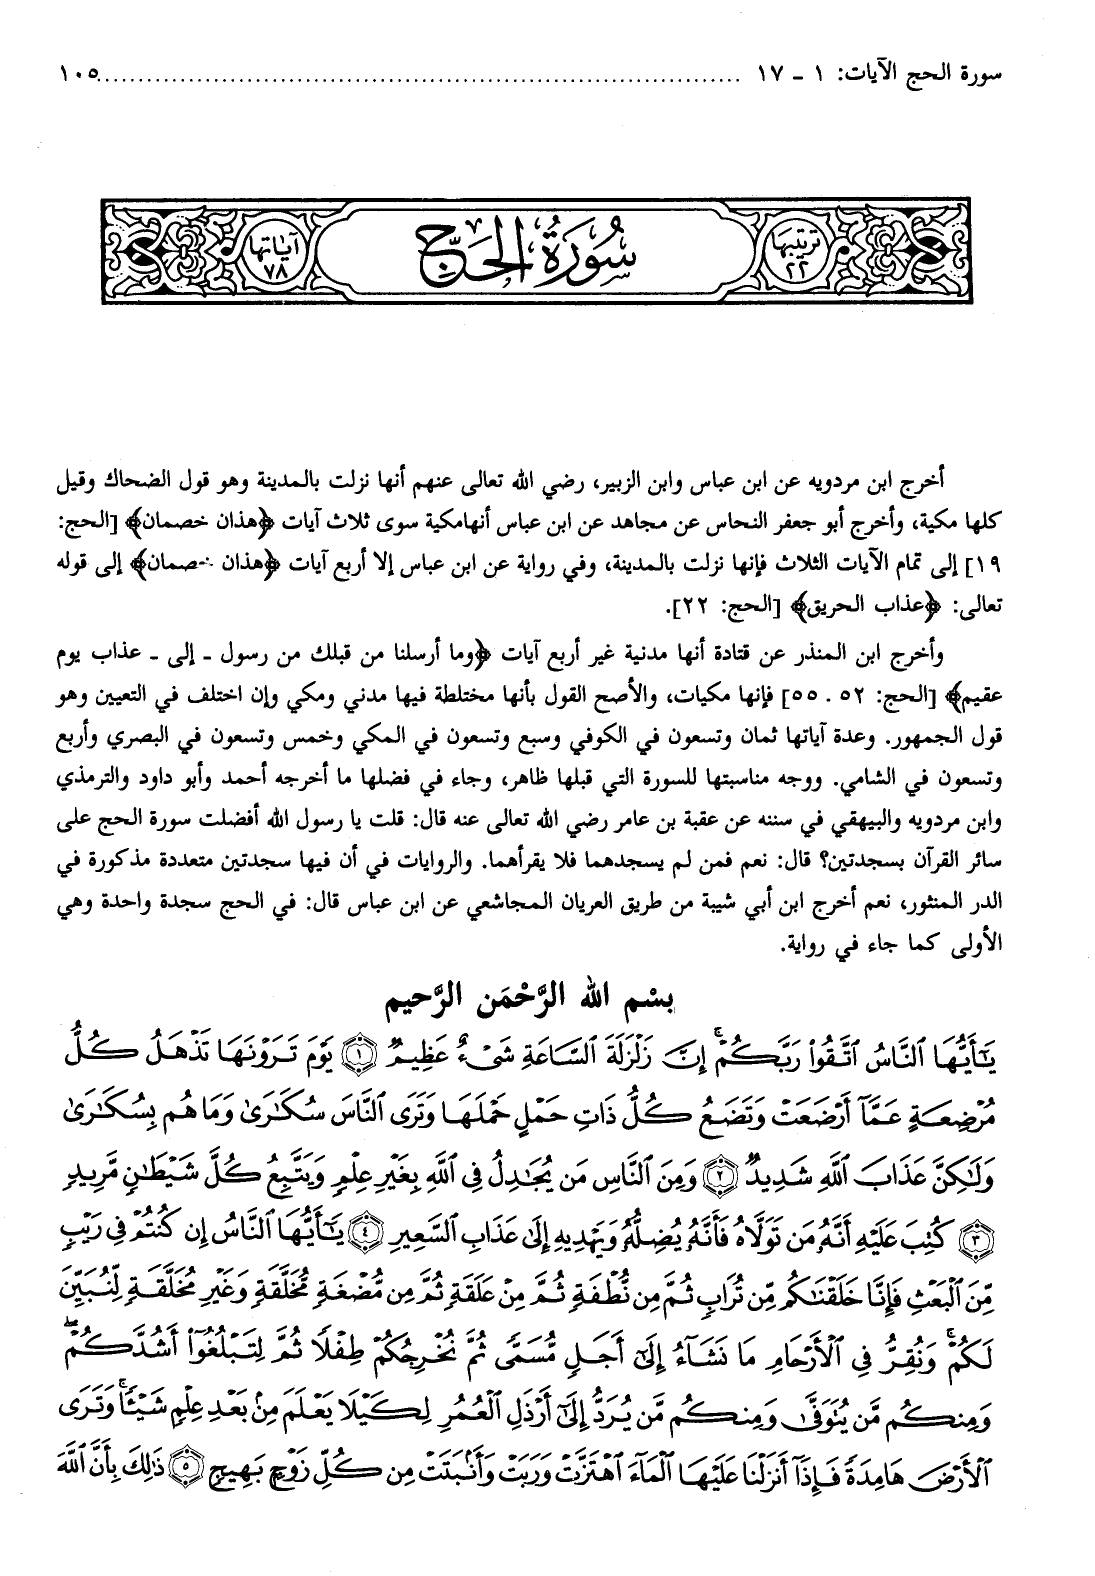 سورة الحج الآيات: ١ ـ ١٧ ............................................................ ١٠٥
ترتيبها ٢٢ سُورَةُ الحَجّ آياتها ٧٨
أخرج ابن مردويه عن ابن عباس وابن الزبير، رضي الله تعالى عنهم أنها نزلت بالمدينة وهو قول الضحاك وقيل
كلها مكية، وأخرج أبو جعفر النحاس عن مجاهد عن ابن عباس أنهامكية سوى ثلاث آيات ﴿هذان خصمان﴾ [الحج:
١٩] إلى تمام الآيات الثلاث فإنها نزلت بالمدينة، وفي رواية عن ابن عباس إلا أربع آيات ﴿هذان خصمان﴾ إلى قوله
تعالى: ﴿عذاب الحريق﴾ [الحج: ٢٢].
وأخرج ابن المنذر عن قتادة أنها مدنية غير أربع آيات ﴿وما أرسلنا من قبلك من رسول ـ إلى ـ عذاب يوم
عقيم﴾ [الحج: ٥٢ . ٥٥] فإنها مكيات، والأصح القول بأنها مختلطة فيها مدني ومكي وإن اختلف في التعيين وهو
قول الجمهور. وعدة آياتها ثمان وتسعون في الكوفي وسبع وتسعون في المكي وخمس وتسعون في البصري وأربع
وتسعون في الشامي. ووجه مناسبتها للسورة التي قبلها ظاهر، وجاء في فضلها ما أخرجه أحمد وأبو داود والترمذي
وابن مردويه والبيهقي في سننه عن عقبة بن عامر رضي الله تعالى عنه قال: قلت يا رسول الله أفضلت سورة الحج على
سائر القرآن بسجدتين؟ قال: نعم فمن لم يسجدهما فلا يقرأهما. والروايات في أن فيها سجدتين متعددة مذكورة في
الدر المنثور، نعم أخرج ابن أبي شيبة من طريق العريان المجاشعي عن ابن عباس قال: في الحج سجدة واحدة وهي
الأولى كما جاء في رواية.
بِسْم الله الرَّحْمَن الرَّحيم
يَٰٓأَيُّهَا ٱلنَّاسُ ٱتَّقُوا۟ رَبَّكُمْ ۚ إِنَّ زَلْزَلَةَ ٱلسَّاعَةِ شَىْءٌ عَظِيمٌ ﴿١﴾ يَوْمَ تَرَوْنَهَا تَذْهَلُ كُلُّ
مُرْضِعَةٍ عَمَّآ أَرْضَعَتْ وَتَضَعُ كُلُّ ذَاتِ حَمْلٍ حَمْلَهَا وَتَرَى ٱلنَّاسَ سُكَٰرَىٰ وَمَا هُم بِسُكَٰرَىٰ
وَلَٰكِنَّ عَذَابَ ٱللَّهِ شَدِيدٌ ﴿٢﴾ وَمِنَ ٱلنَّاسِ مَن يُجَٰدِلُ فِى ٱللَّهِ بِغَيْرِ عِلْمٍ وَيَتَّبِعُ كُلَّ شَيْطَٰنٍ مَّرِيدٍ
﴿٣﴾ كُتِبَ عَلَيْهِ أَنَّهُۥ مَن تَوَلَّاهُ فَأَنَّهُۥ يُضِلُّهُۥ وَيَهْدِيهِ إِلَىٰ عَذَابِ ٱلسَّعِيرِ ﴿٤﴾ يَٰٓأَيُّهَا ٱلنَّاسُ إِن كُنتُمْ فِى رَيْبٍ
مِّنَ ٱلْبَعْثِ فَإِنَّا خَلَقْنَٰكُم مِّن تُرَابٍ ثُمَّ مِن نُّطْفَةٍ ثُمَّ مِنْ عَلَقَةٍ ثُمَّ مِن مُّضْغَةٍ مُّخَلَّقَةٍ وَغَيْرِ مُخَلَّقَةٍ لِّنُبَيِّنَ
لَكُمْ ۚ وَنُقِرُّ فِى ٱلْأَرْحَامِ مَا نَشَآءُ إِلَىٰٓ أَجَلٍ مُّسَمًّى ثُمَّ نُخْرِجُكُمْ طِفْلًا ثُمَّ لِتَبْلُغُوٓا۟ أَشُدَّكُمْ ۖ
وَمِنكُم مَّن يُتَوَفَّىٰ وَمِنكُم مَّن يُرَدُّ إِلَىٰٓ أَرْذَلِ ٱلْعُمُرِ لِكَيْلَا يَعْلَمَ مِنۢ بَعْدِ عِلْمٍ شَيْـًٔا ۚ وَتَرَى
ٱلْأَرْضَ هَامِدَةً فَإِذَآ أَنزَلْنَا عَلَيْهَا ٱلْمَآءَ ٱهْتَزَّتْ وَرَبَتْ وَأَنۢبَتَتْ مِن كُلِّ زَوْجٍۭ بَهِيجٍ ﴿٥﴾ ذَٰلِكَ بِأَنَّ ٱللَّهَ